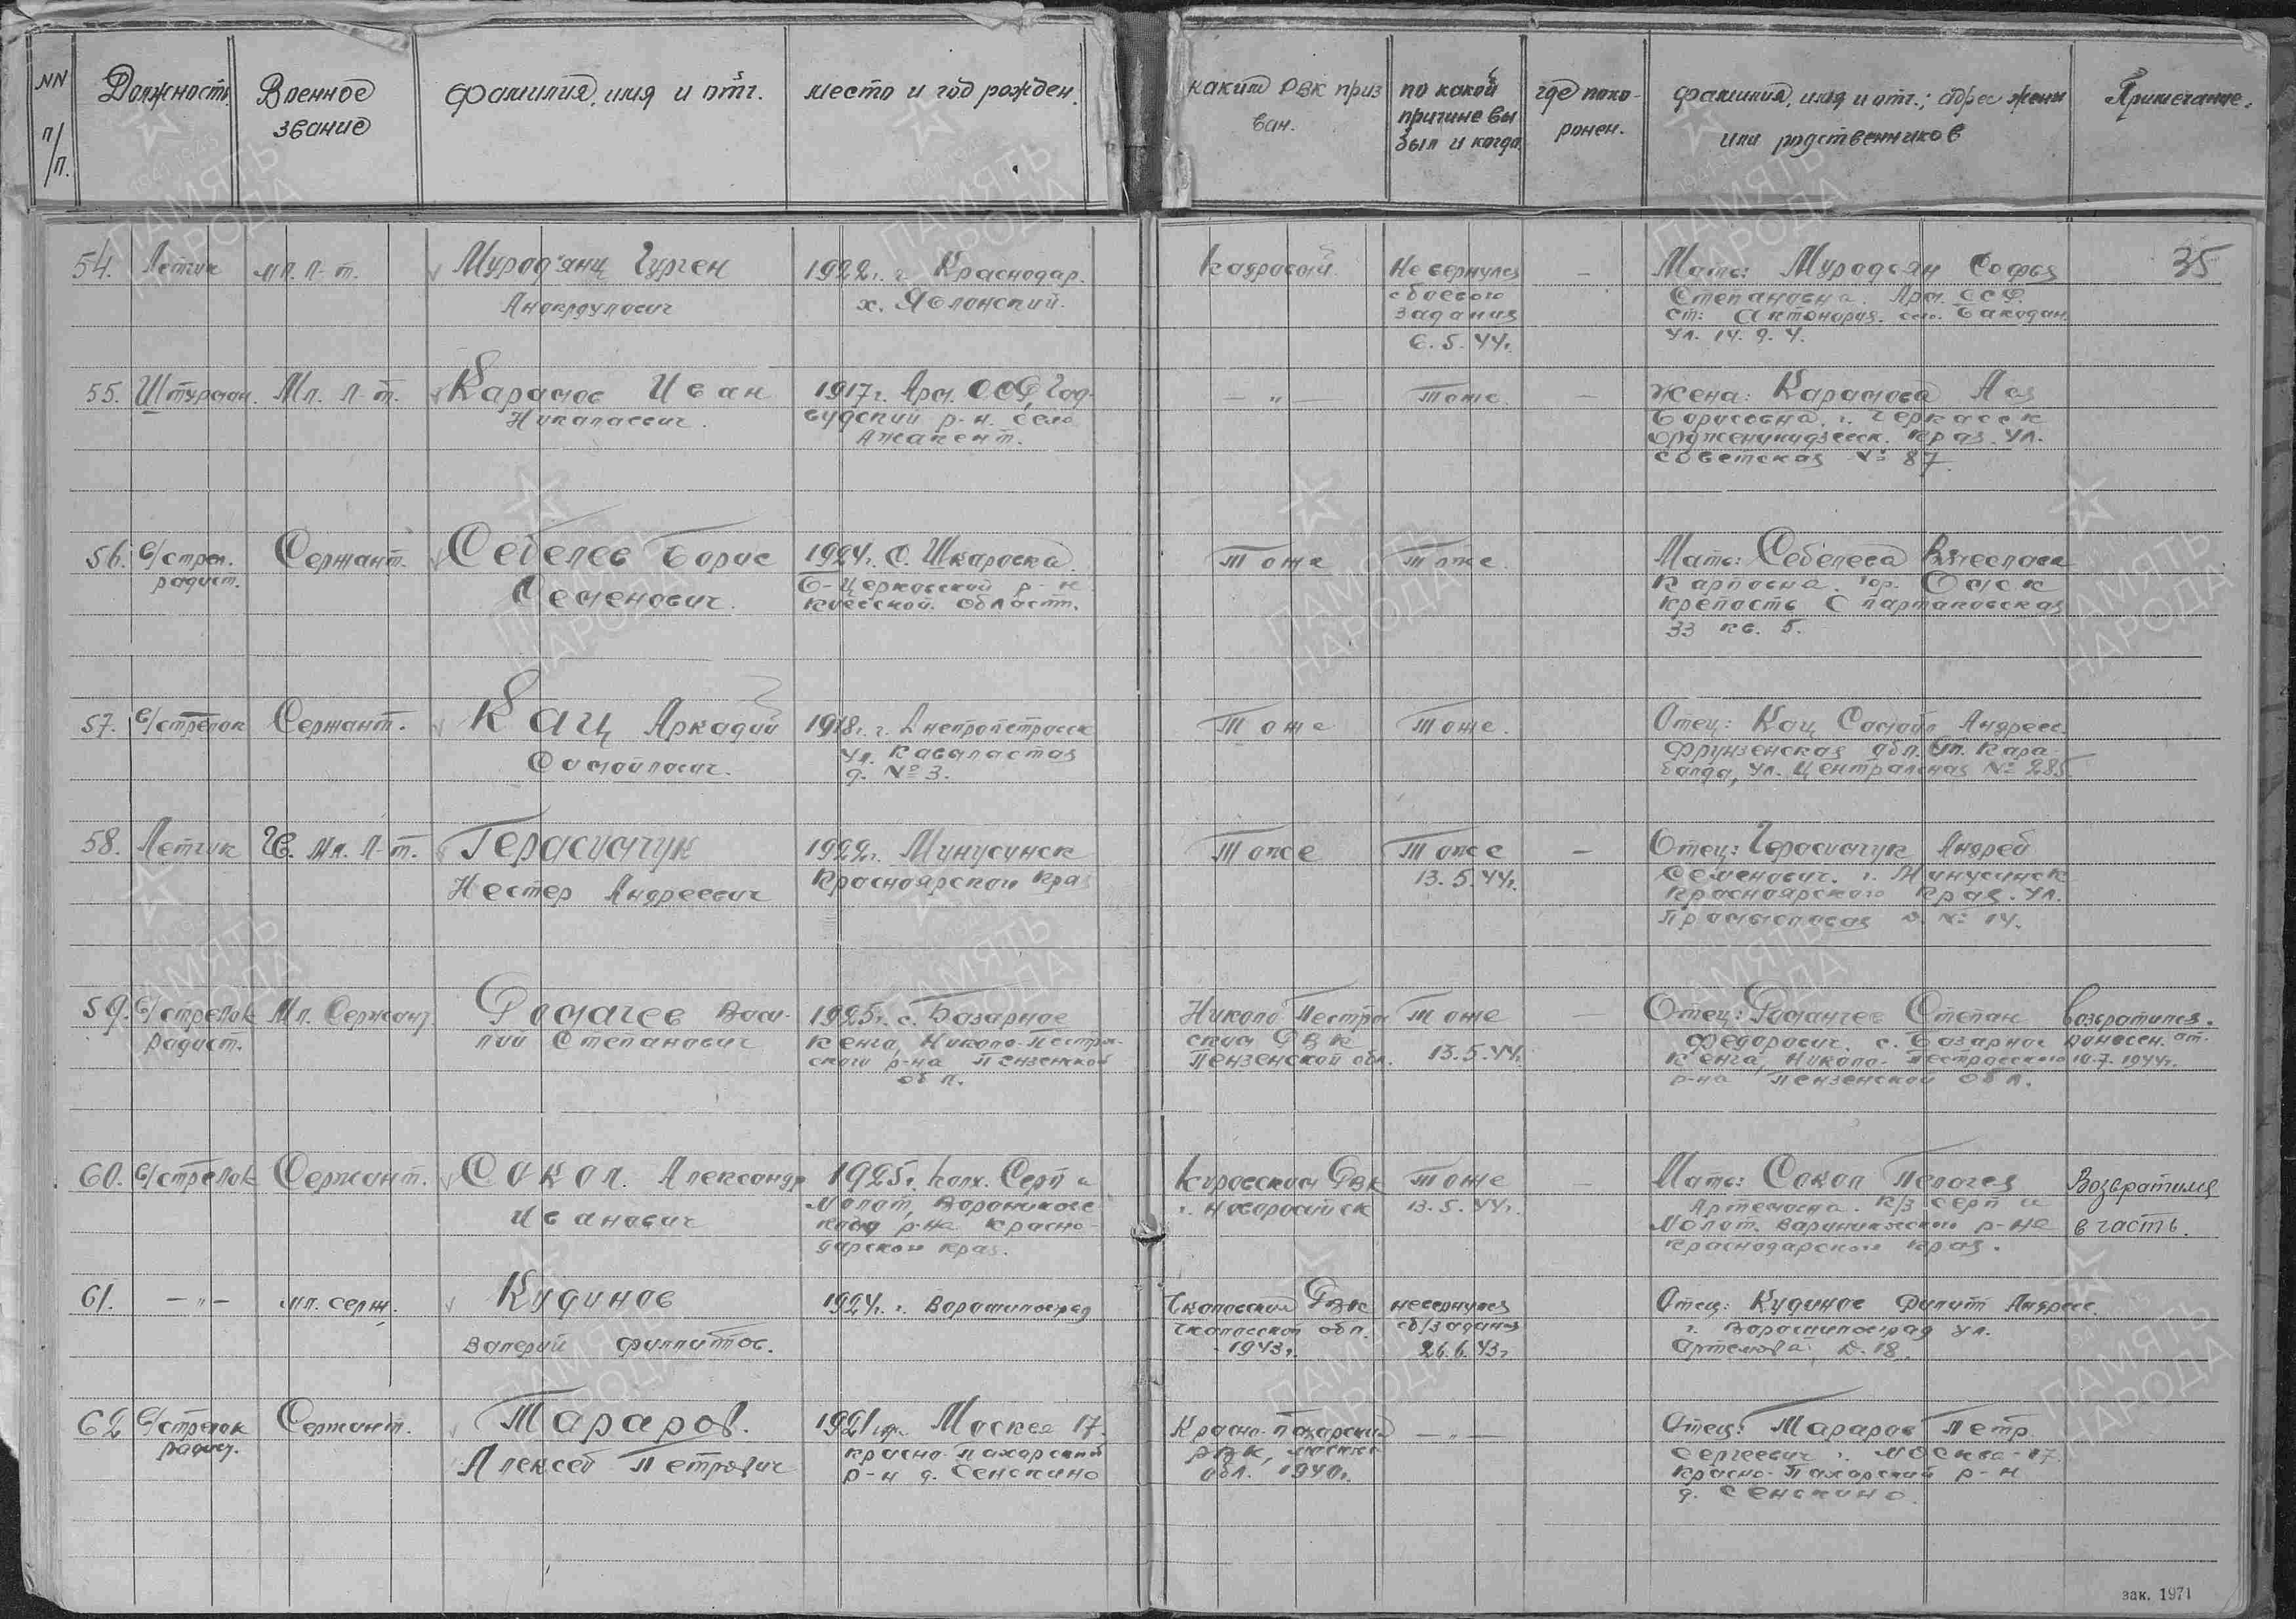 NN п/п. Должность. Военное звание фамилия, имя и отч. место и год рожден. каким РВК призван. по какой причине выбыл и когда где похоронен. фамилия, имя и отч.; адрес жены или родственников Примечание.
35
54. Летчик мл. л-т. Мурод'янц Гурген 1922г. г. Краснодар. Кадровый. Не вернулся — Мать: Мурадсян Софья
х. Яблонский. с боевого Степановна. Арм. ССР.
задания
6.5.44г. ул. 14. д. 4.
55. Штурман. Мл. л-т. Карамов Иван 1917г. Арм. ССР, — " — Тоже. — Жена: Карамова Ася
Николаевич. р-н. село Борисовна. г. Черкесск
Орджоникидзевск. края. ул.
Советская № 87.
56. в/стрел. Сержант. Себелев Борис 1924г. С. Шкаровка Тоже Тоже. Мать: Себелева
радист. Семенович. Б-Церковский р-н Карповна. гор. Омск
Киевской. области. крепость Спартаковская
33 кв. 5.
57. в/стрелок Сержант. Кац Аркадий 1918г. г. Днепропетровск Тоже Тоже. Отец: Кац Самойл Андреев.
Самойлович. ул. Фрунзенская обл. ст. Кара-
д. № 3. балда, ул. Центральная № 285.
58. Летчик Гв. мл. л-т. Герасимчук 1922г. Минусинск Тоже Тоже — Отец: Герасимчук Андрей
Нестер Андреевич Красноярского края 13.5.44г. Семенович. г. Минусинск
Красноярского края. ул.
Промысловая д. № 14.
59. в/стрелок Мл. Сержант Ромачев Васи- 1925г. с. Базарное Николо Пестров Тоже — Отец: Романчев Степан Возвратился.
радист. лий Степанович Кенга, Николо-Пестров- ским РВК 13.5.44г. Федорович. с. Базарное донесен. от.
ского р-на Пензенской Пензенской обл. Кенга, Николо-Пестровского 10.7.1944г.
обл. р-на Пензенской обл.
60. в/стрелок Сержант. Сокол. Александр 1925г. Колх. Серп и Кировским РВК тоже — Мать: Сокол Пелагея Возвратился
Иванович Молот, г. Новоросийск 13.5.44г. Артемовна. к/з Серп и
р-на Красно- Молот. р-не в часть.
дарского края. Краснодарского края.
61. — " — мл. серж. Кудинов 1924г. г. Ворошиловград Чкаловским РВК не вернулся Отец: Кудинов Филипп Андреев.
Валерий Филлипов. Чкаловской обл. с б/задания г. Ворошиловград ул.
1943г. 26.6.43г. Артемова. д. 18.
62 в/стрелок Сержант. Тараров. 1921г. Москва 17. Красно-Пахорский — " — Отец: Тараров Петр
радист. Алексей Петрович Красно-Пахорский РВК, москов. Сергеевич г. Москва-17.
р-н д. Сенскино обл. 1940г. Красно-Пахорский р-н
д. Сенскино.
зак. 1971
ПАМЯТЬ НАРОДА